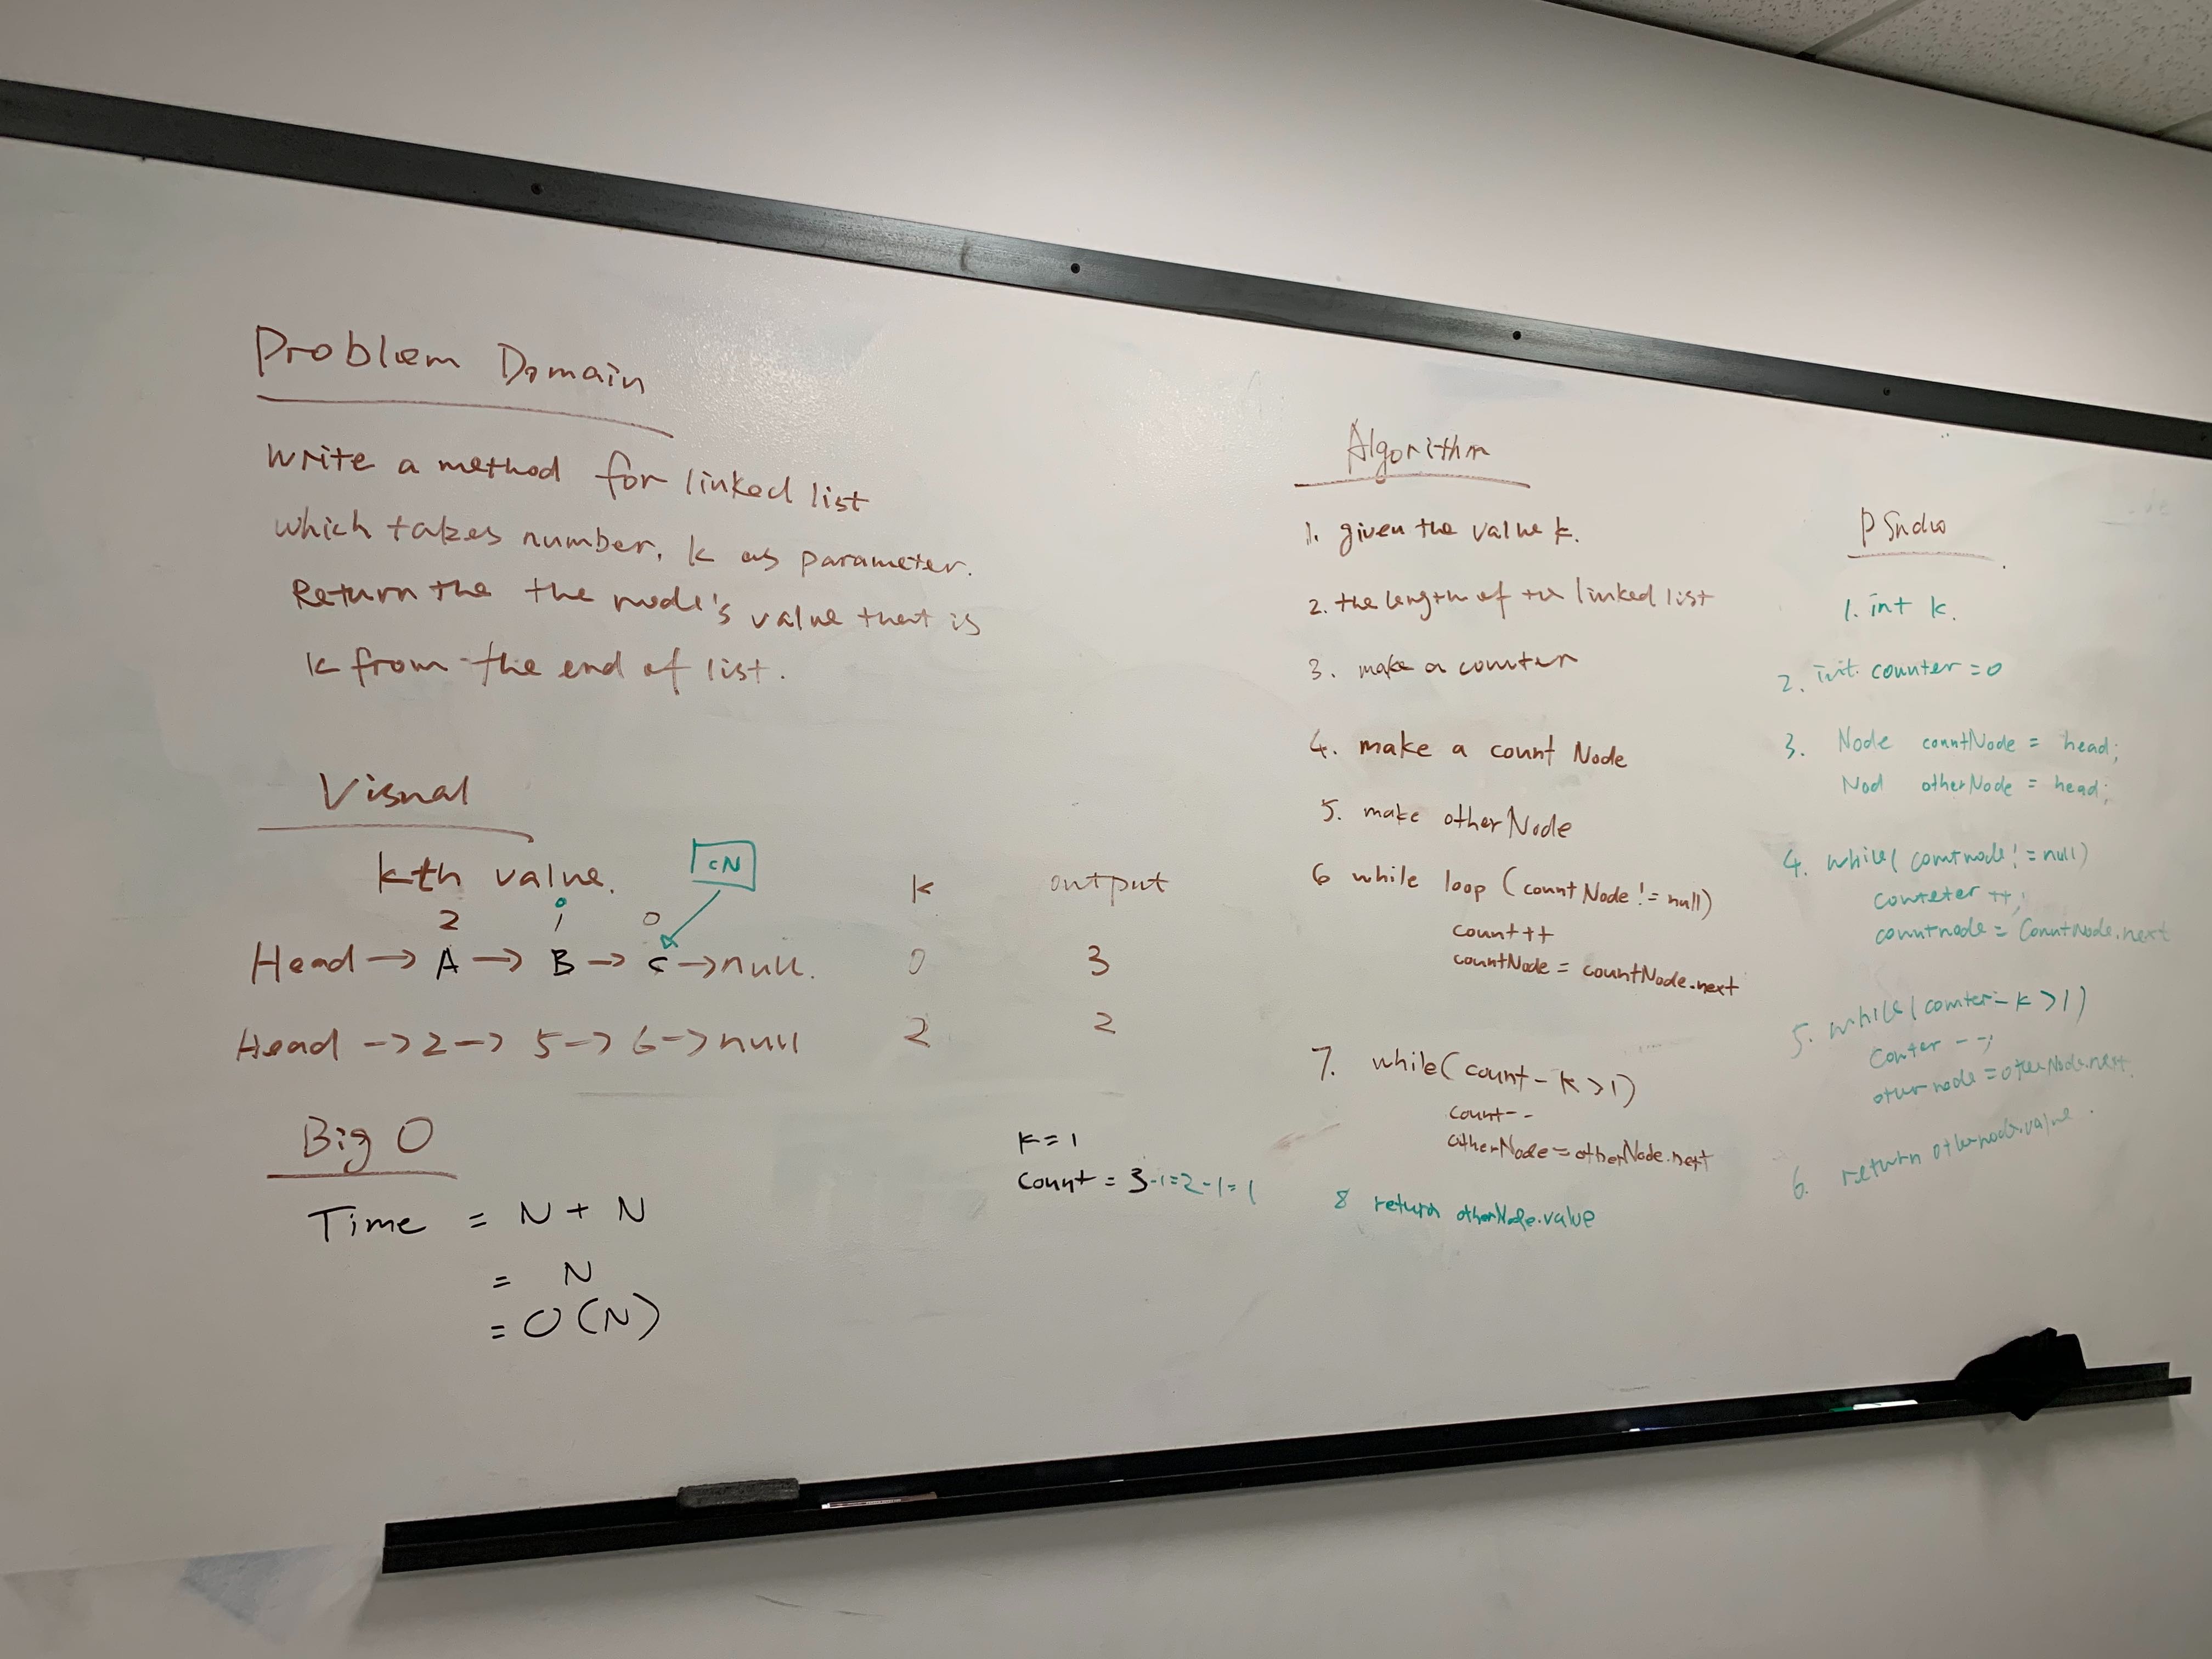 Problem Domain
Write a method for linked list
which takes number, k as parameter.
Return the the node's value that is
k from the end of list.
Visual
kth value.
cN
k
output
2 1 0
Head → A → B → C → null.
0
3
Head → 2 → 5 → 6 → null
2
2
Big O
Time = N + N
= N
= O(N)
k = 1
count = 3-1=2-1=1
Algorithm
1. given the value k.
2. the length of the linked list
3. make a counter
4. make a count Node
5. make otherNode
6 while loop (countNode != null)
count++
countNode = countNode.next
7. while(count - k > 1)
count--
otherNode = otherNode.next
8 return otherNode.value
Psudo
1. int k.
2. int. counter = 0
3. Node countNode = head;
Nod otherNode = head;
4. while(countnode != null)
counteter ++;
countnode = CountNode.next
5. while(counter - k > 1)
Conter --;
other node = otherNode.next.
6. return othernode.value.